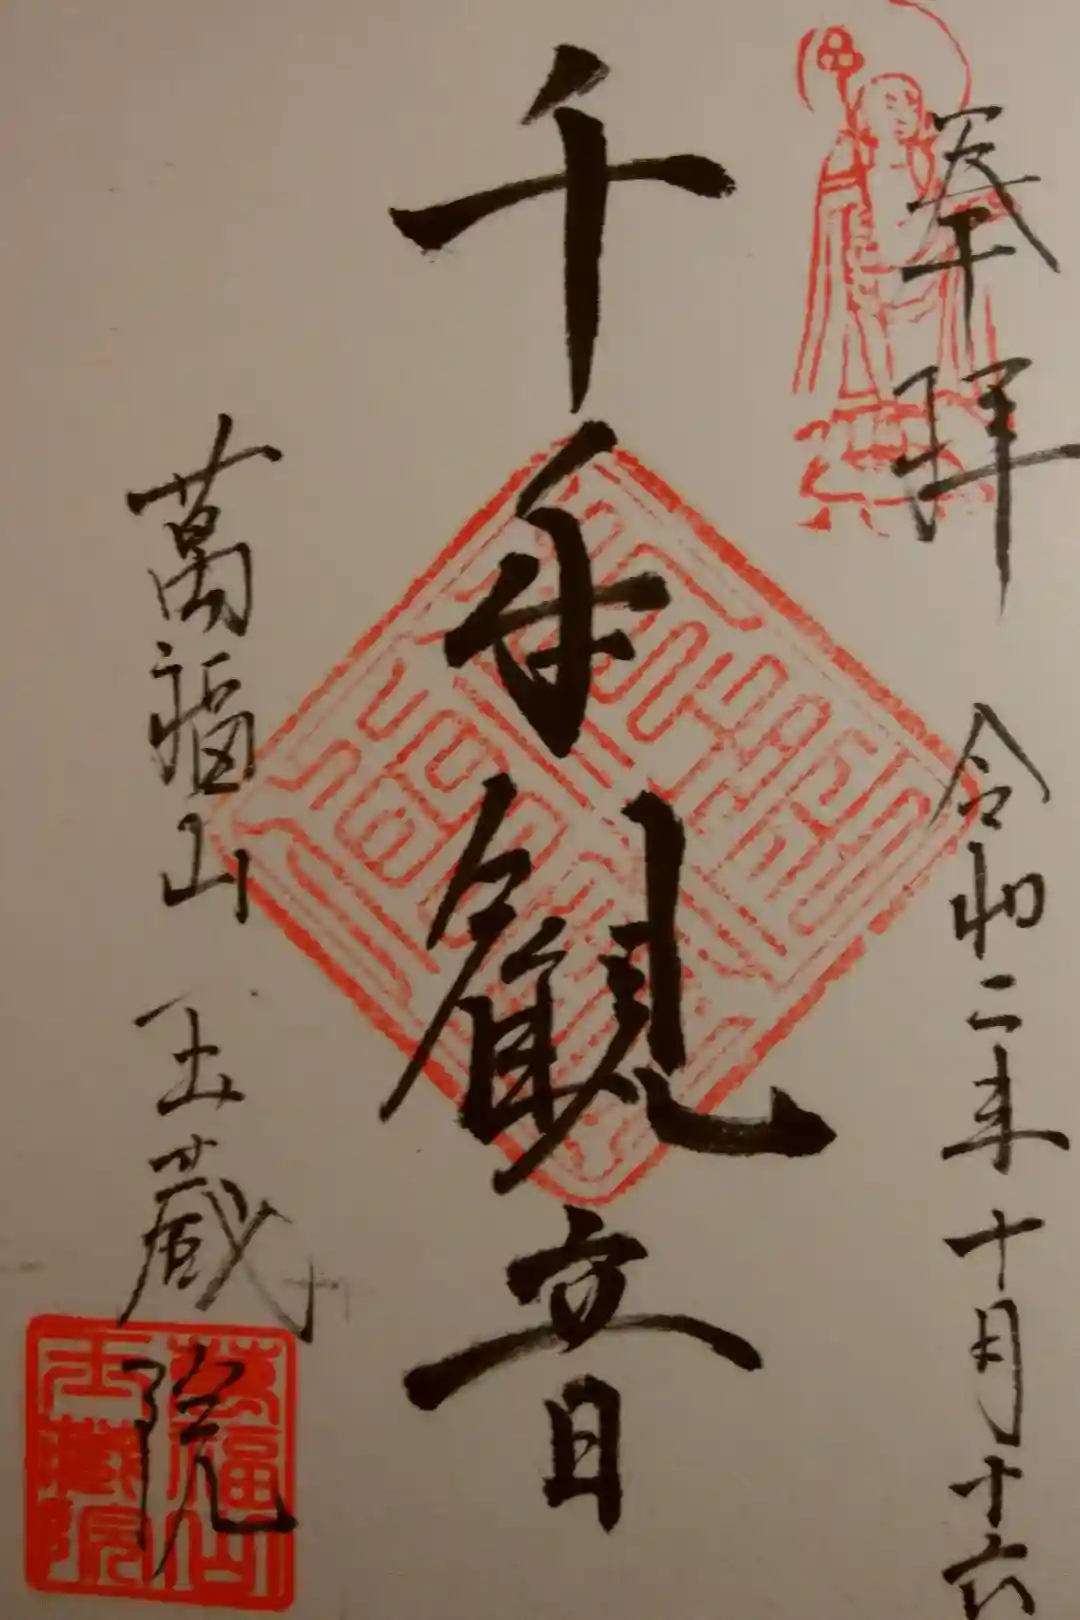 奉拝
令和二年十月十六
千手觀音
萬福山 玉蔵院
萬福山
玉蔵院